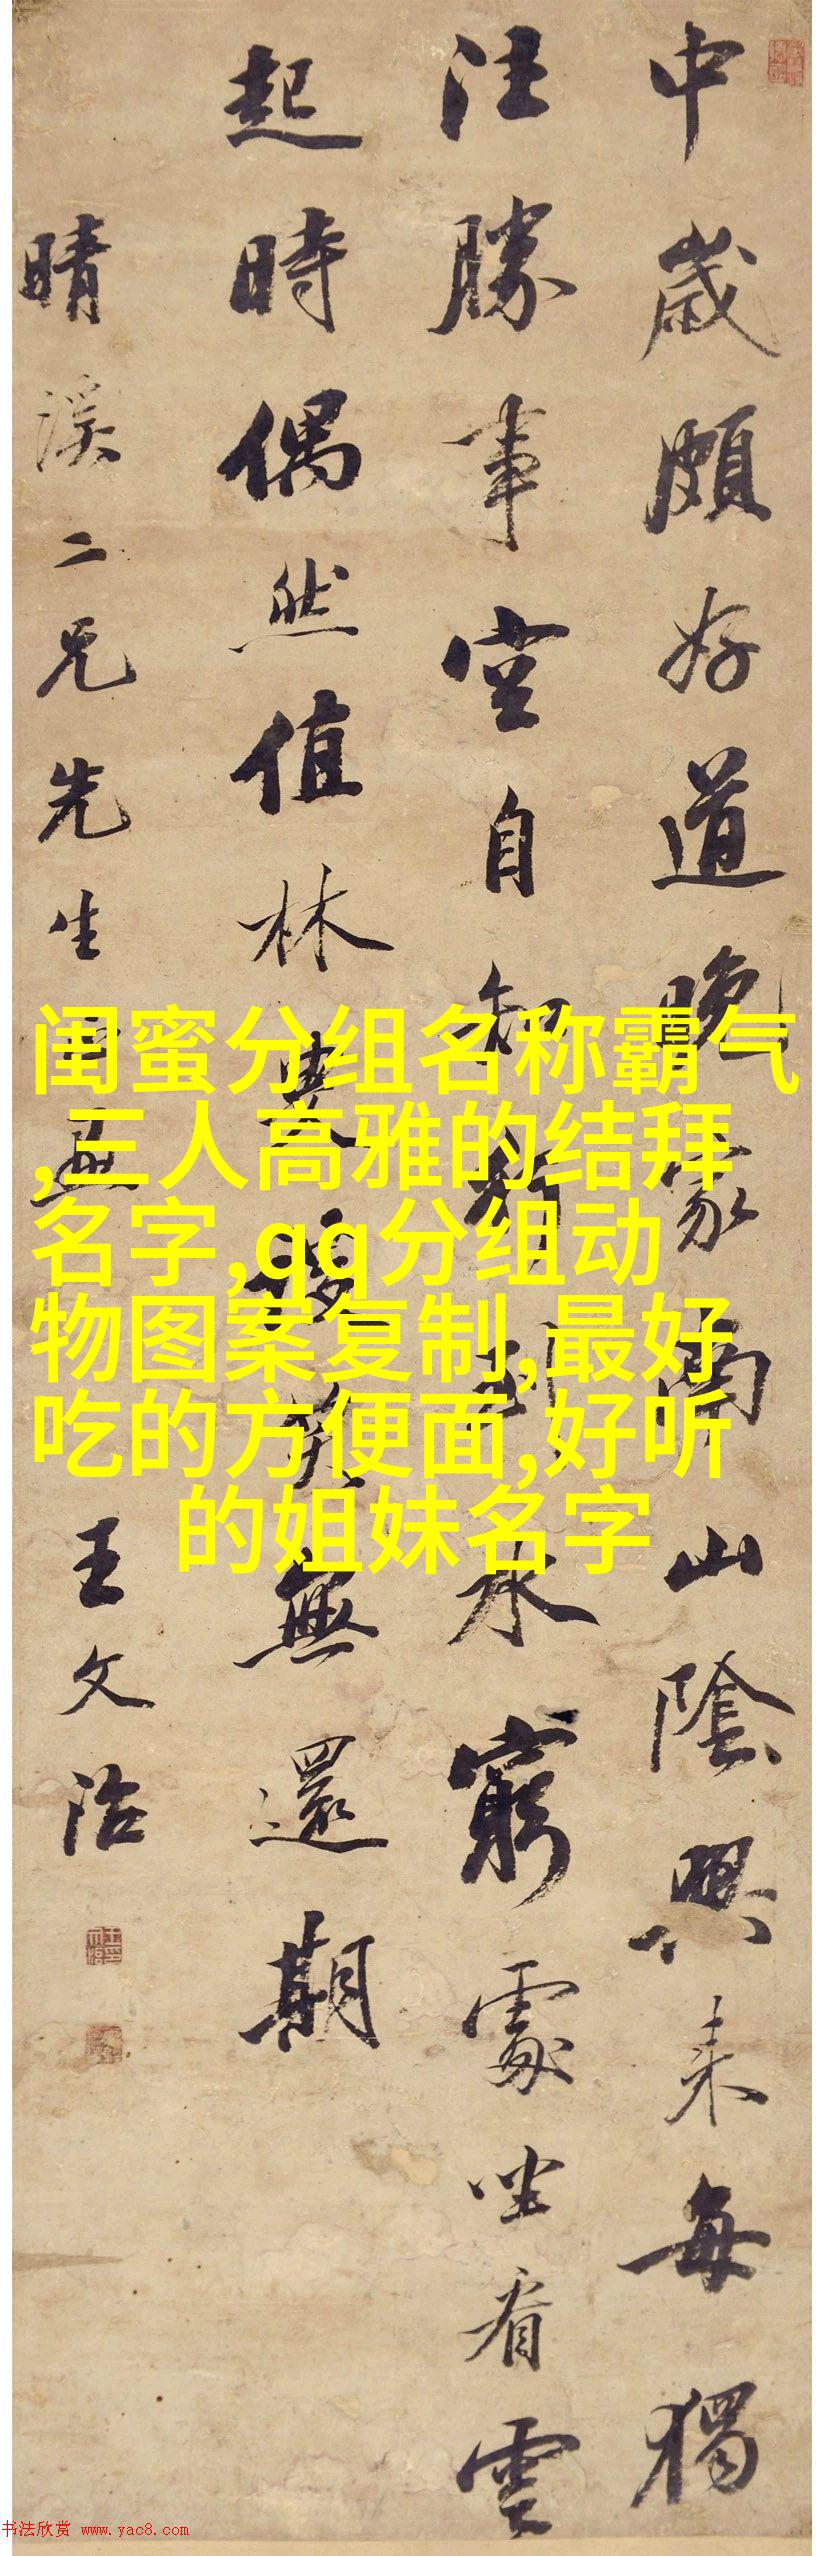 中歲頗好道晚家南山陰興来每獨
往勝事空自知行到水窮處坐看雲
起時偶然值林叟笑無還期
晴溪二兄先生
王文治
闺蜜分组名称霸气
,三人高雅的结拜
名字,qq分组动
物图案复制,最好
吃的方便面,好听
的姐妹名字
书法欣赏 www.yac8.com